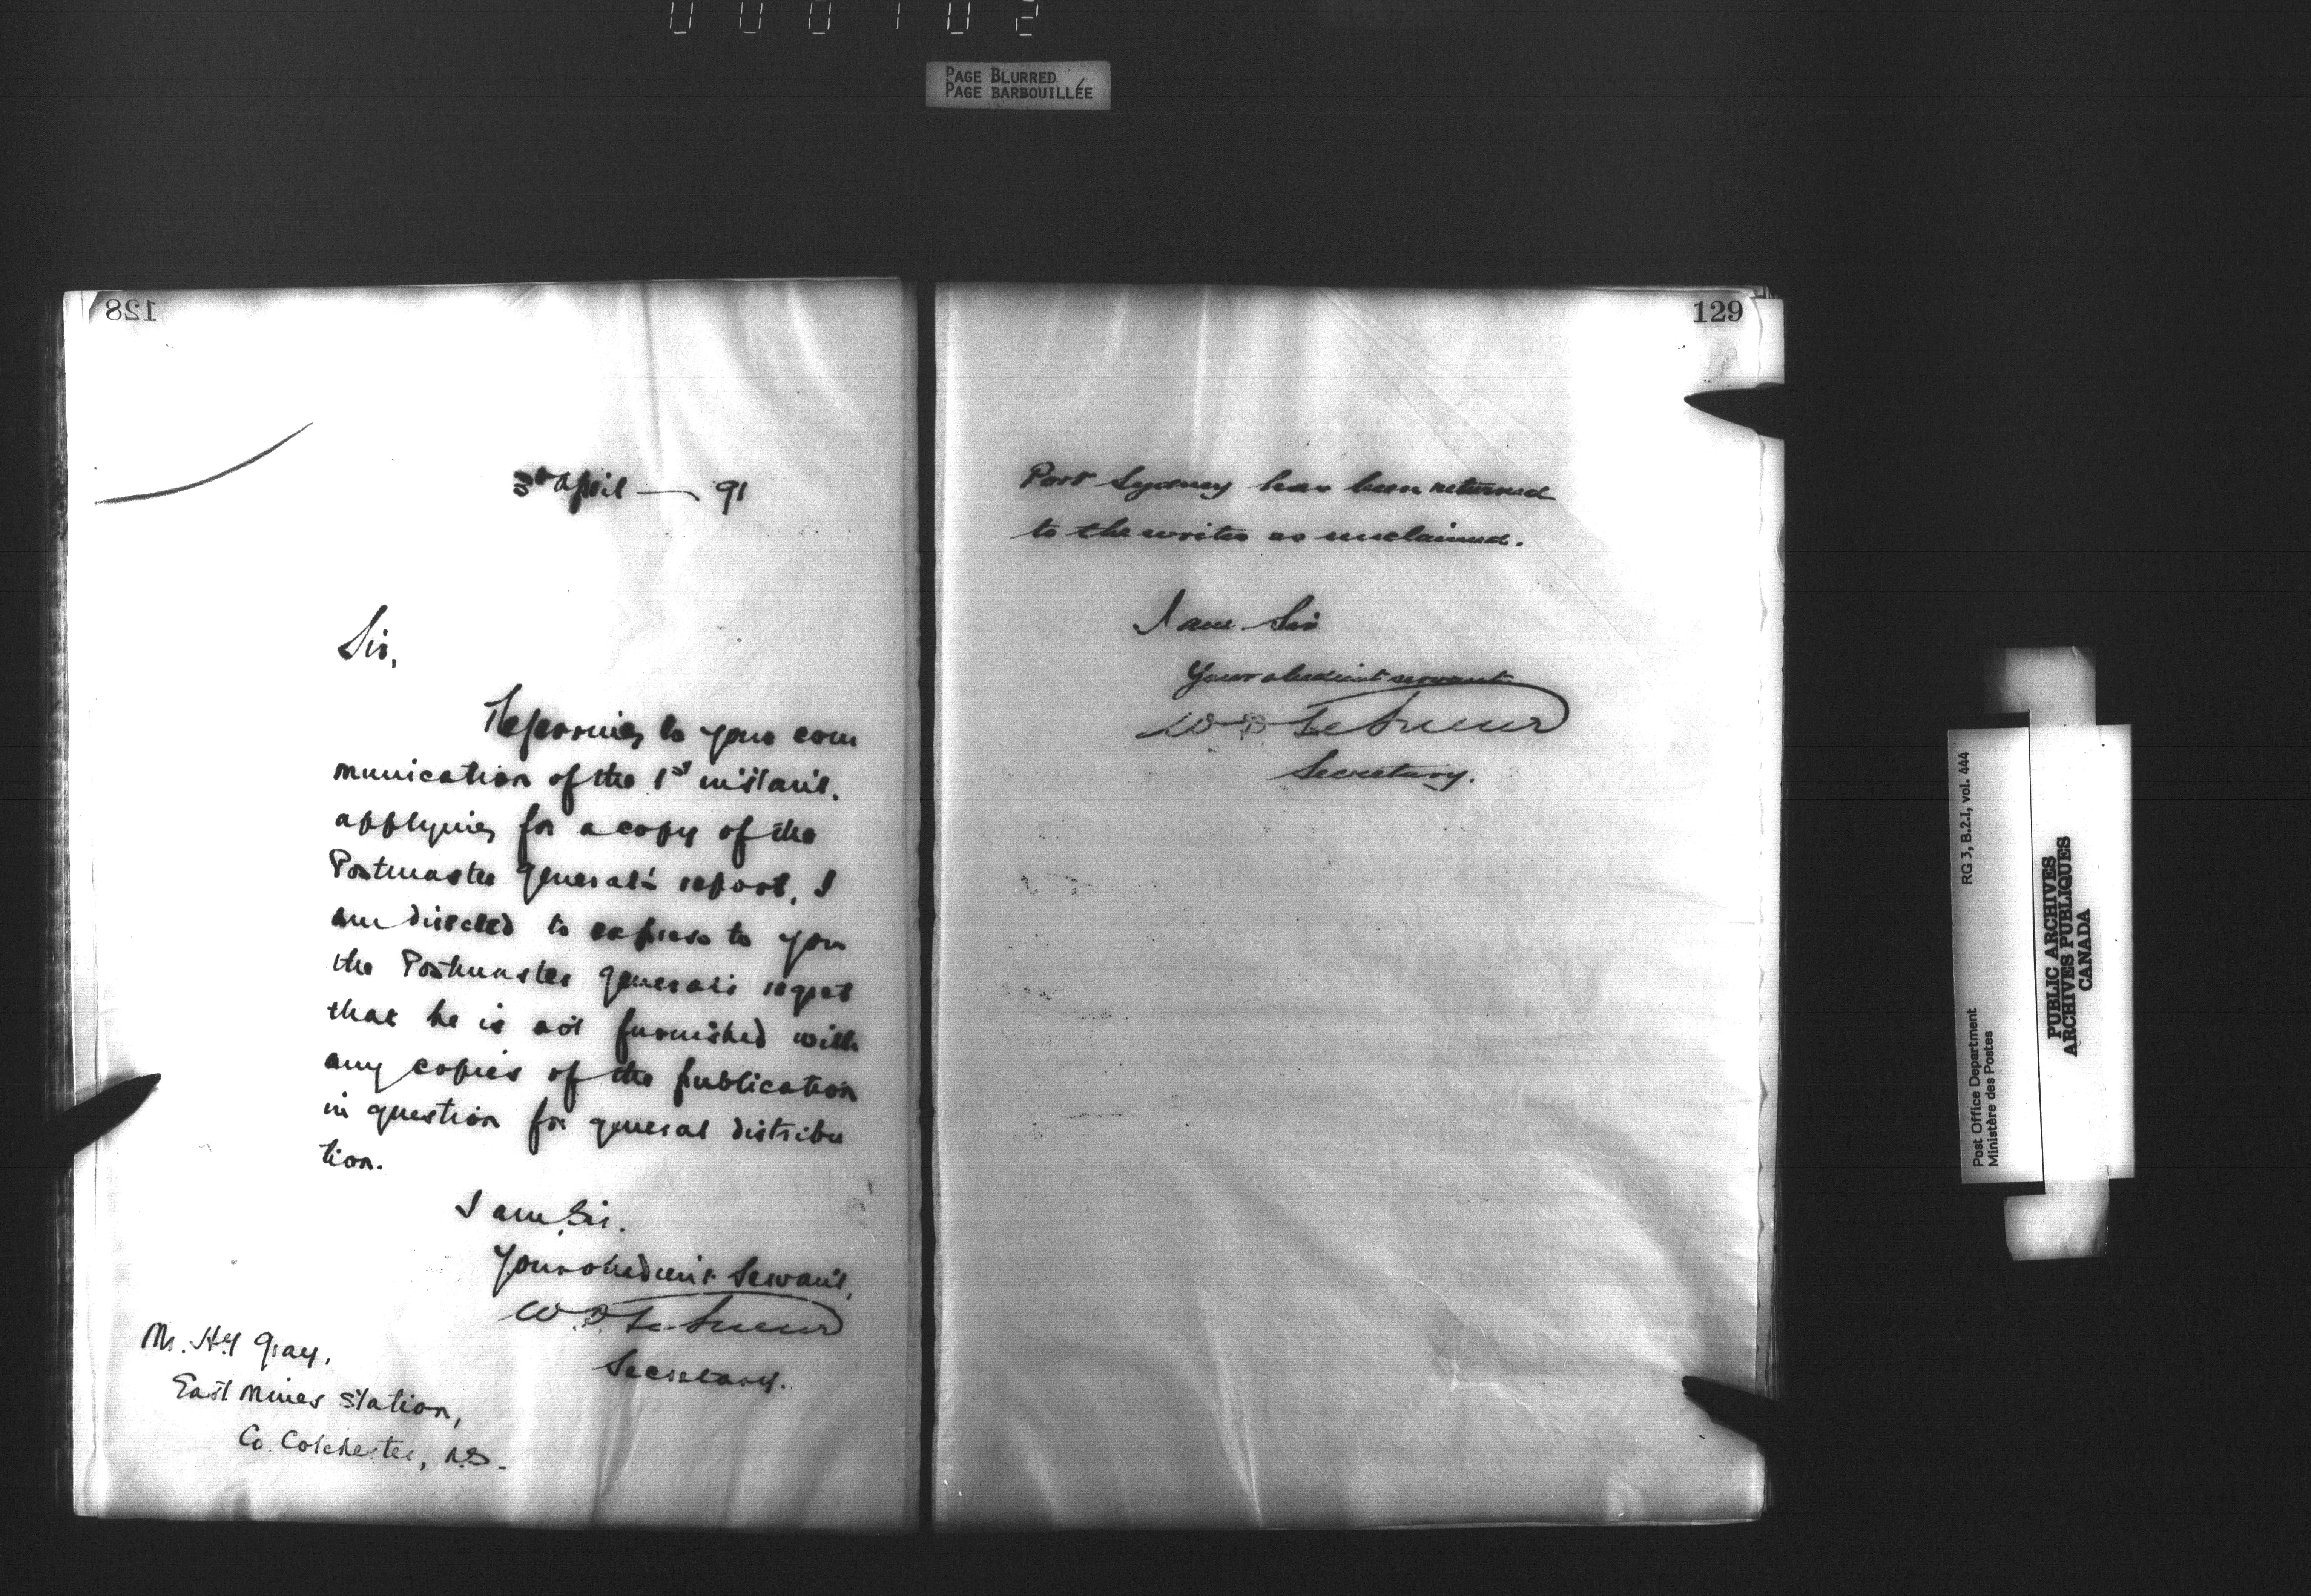 000102
PAGE BLURRED
PAGE BARBOUILLÉE
128
3rd April — 91
Sir,
Referring to your com
munication of the 1st instant.
applying for a copy of the
Postmaster General's report, I
am directed to express to you
the Postmaster General's regret
that he is not furnished with
any copies of the publication
in question for general distribu
tion.
I am, Sir.
Your obedient Servant,
W. D. LeSueur
Secretary.
Mr. Hy Gray,
East Mines Station,
Co. Colchester, N.S.
129
Port Sydney has been returned
to the writer as unclaimed.
I am Sir
Your obedient servant
W D LeSueur
Secretary.
RG 3, B.2.I, vol. 444
Post Office Department
Ministère des Postes
PUBLIC ARCHIVES
ARCHIVES PUBLIQUES
CANADA